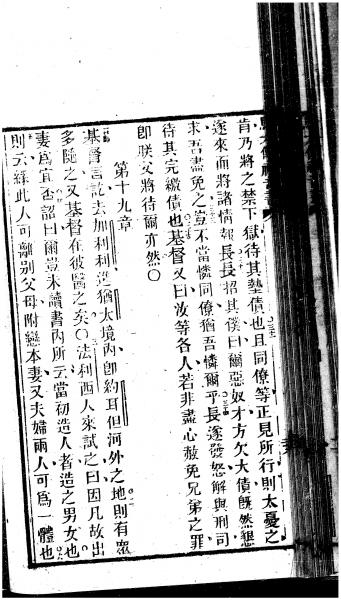 肯乃將之禁下獄待其墊債也且同僚等正見所行則太憂之
遂來而將諸情報長長招其僕曰爾惡奴才方欠大債旣然懇
求吾盡免之豈不當憐同僚猶吾憐爾乎長遂發怒解與刑司
待其完繳債也基督又曰汝等各人若非盡心赦免兄弟之罪
卽朕父將待爾亦然〇
第十九章
基督言訖去加利利進猶太境內卽約耳但河外之地則有衆
多隨之又基督在彼醫之矣〇法利西人來試之曰因凡故出
妻爲宜否詔曰爾豈未讀書內所云當初造人者造之男女也
則云緣此人可離別父母附戀本妻又夫婦兩人可爲一體也